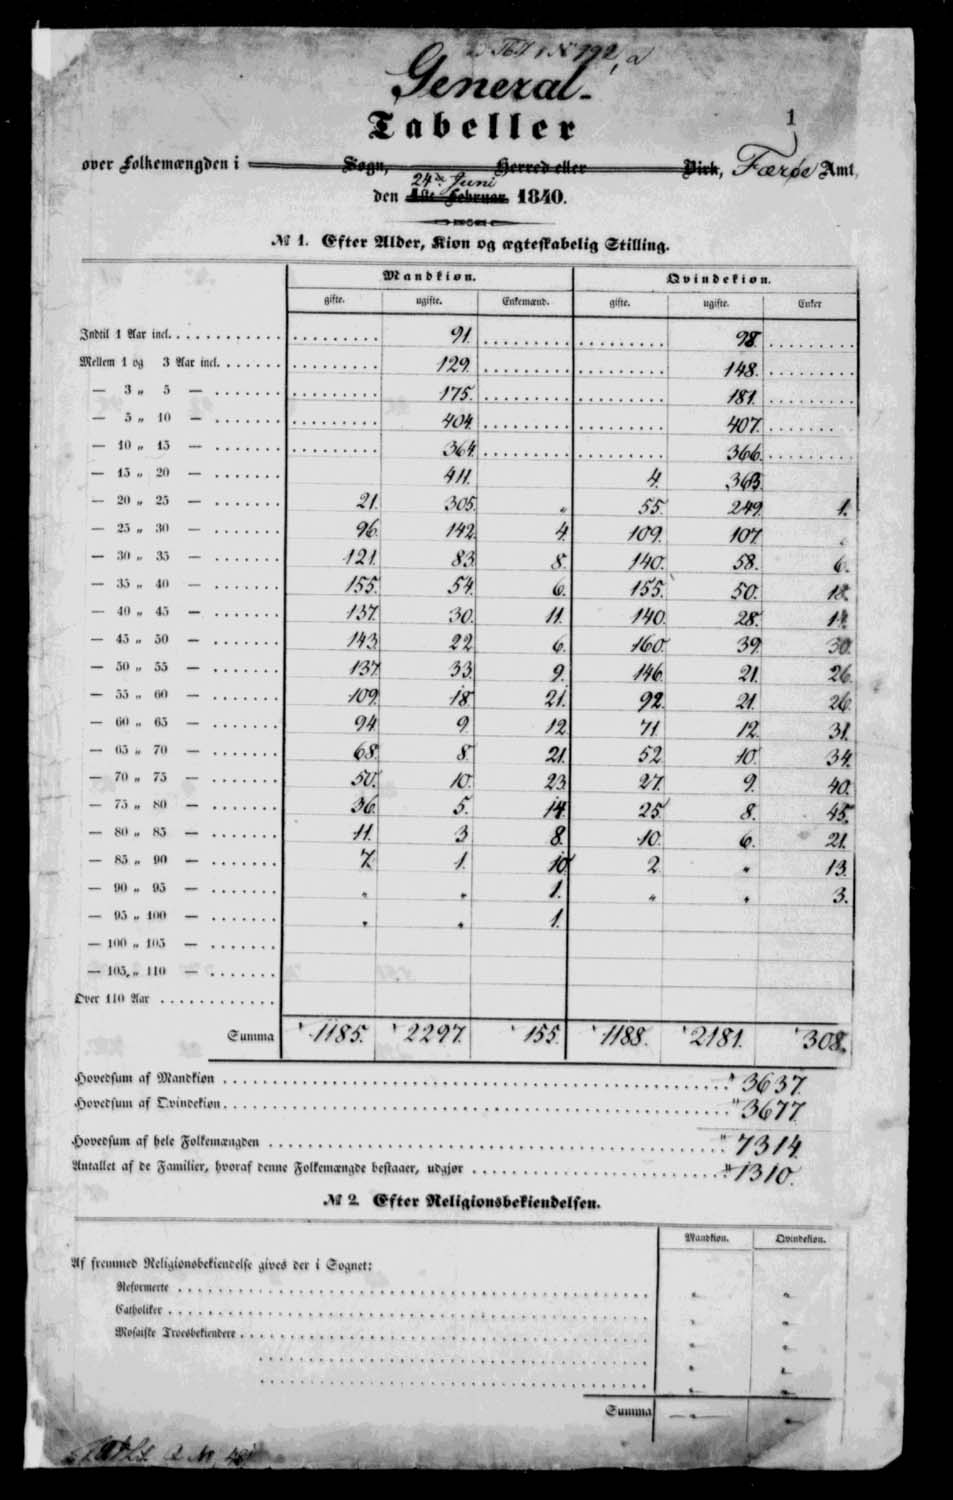 General-
Tabeller
1
over Folkemængden i Sogn, Herred eller Birk, Færøe Amt,
24de Juni
den 1ste Februar 1840.
№ 1. Efter Alder, Kion og ægteskabelig Stilling.
Mandkion. Qvindekion.
gifte. ugifte. Enkemænd. gifte. ugifte. Enker
Indtil 1 Aar incl. 91. 98.
Mellem 1 og 3 Aar incl. 129. 148.
— 3 „ 5 — 175. 181.
— 5 „ 10 — 404. 407.
— 10 „ 15 — 364. 366.
— 15 „ 20 — 411. 4. 363.
— 20 „ 25 — 21. 305. „ 55. 249. 1.
— 25 „ 30 — 96. 142. 4. 109. 107. „
— 30 „ 35 — 121. 83. 8. 140. 58. 6.
— 35 „ 40 — 155. 54. 6. 155. 50. 18.
— 40 „ 45 — 137. 30. 11. 140. 28. 14.
— 45 „ 50 — 143. 22. 6. 160. 39. 30.
— 50 „ 55 — 137. 33. 9. 146. 21. 26.
— 55 „ 60 — 109. 18. 21. 92. 21. 26.
— 60 „ 65 — 94. 9. 12. 71. 12. 31.
— 65 „ 70 — 68. 8. 21. 52. 10. 34.
— 70 „ 75 — 50. 10. 23. 27. 9. 40.
— 75 „ 80 — 36. 5. 14. 25. 8. 45.
— 80 „ 85 — 11. 3 8. 10. 6. 21.
— 85 „ 90 — 7. 1. 10. 2 „ 13.
— 90 „ 95 — „ „ 1. „ „ 3.
— 95 „ 100 — „ „ 1.
— 100 „ 105 —
— 105, „ 110 —
Over 110 Aar
Summa 1185. 2297. 155. 1188. 2181. 308.
Hovedsum af Mandkion 3637.
Hovedsum af Qvindekion 3677.
Hovedsum af hele Folkemængden 7314.
Antallet af de Familier, hvoraf denne Folkemængde bestaaer, udgjør 1310.
№ 2. Efter Religionsbekiendelsen.
Mandkion. Qvindekion.
Af fremmed Religionsbekiendelse gives der i Sognet:
Reformerte „ „
Catholiker „ „
Mosaiske Troesbekiendere „ „
„ „
„ „
Summa — „ — „